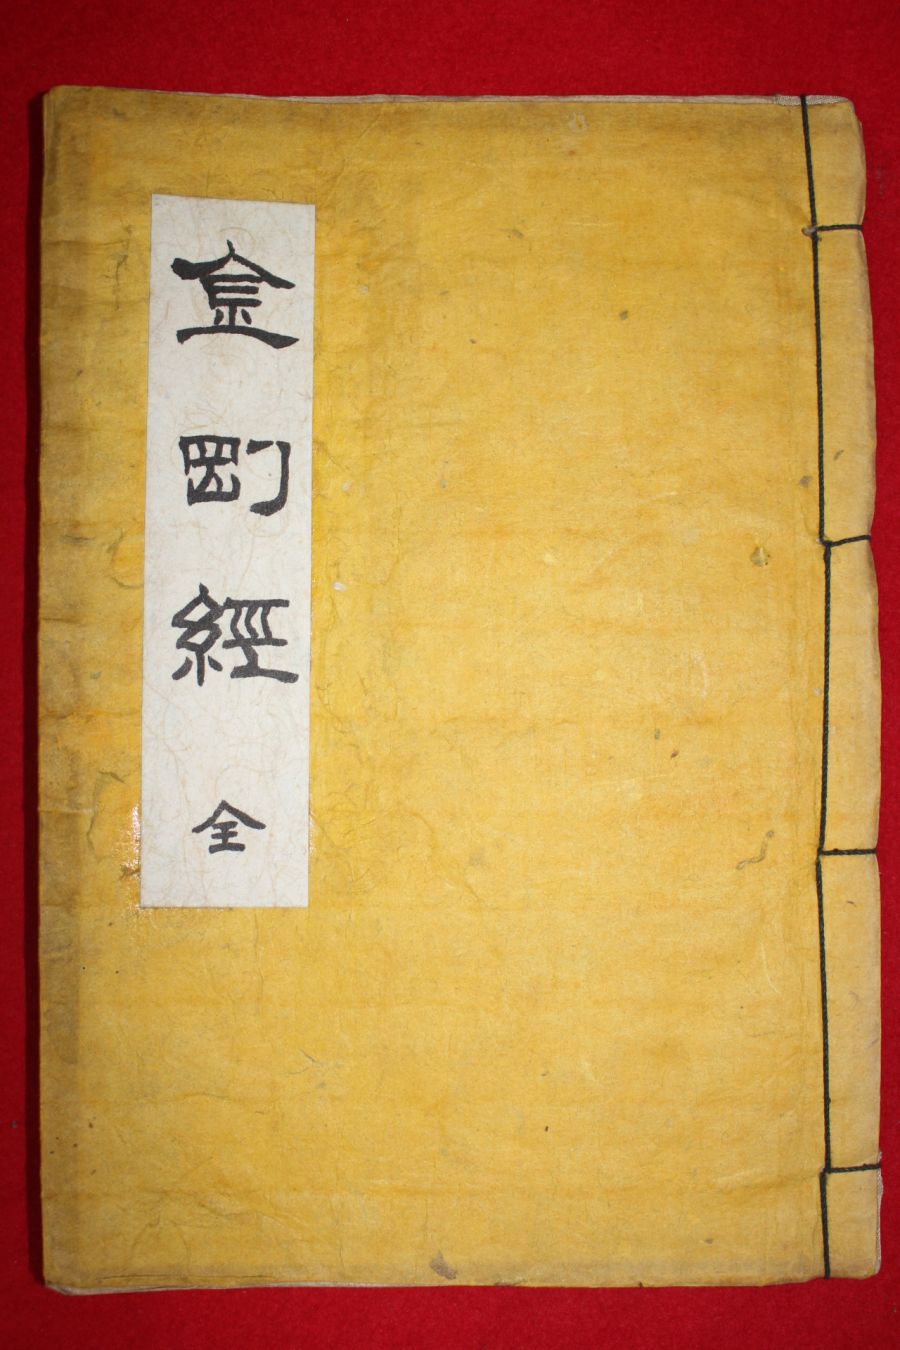 金剛經 全